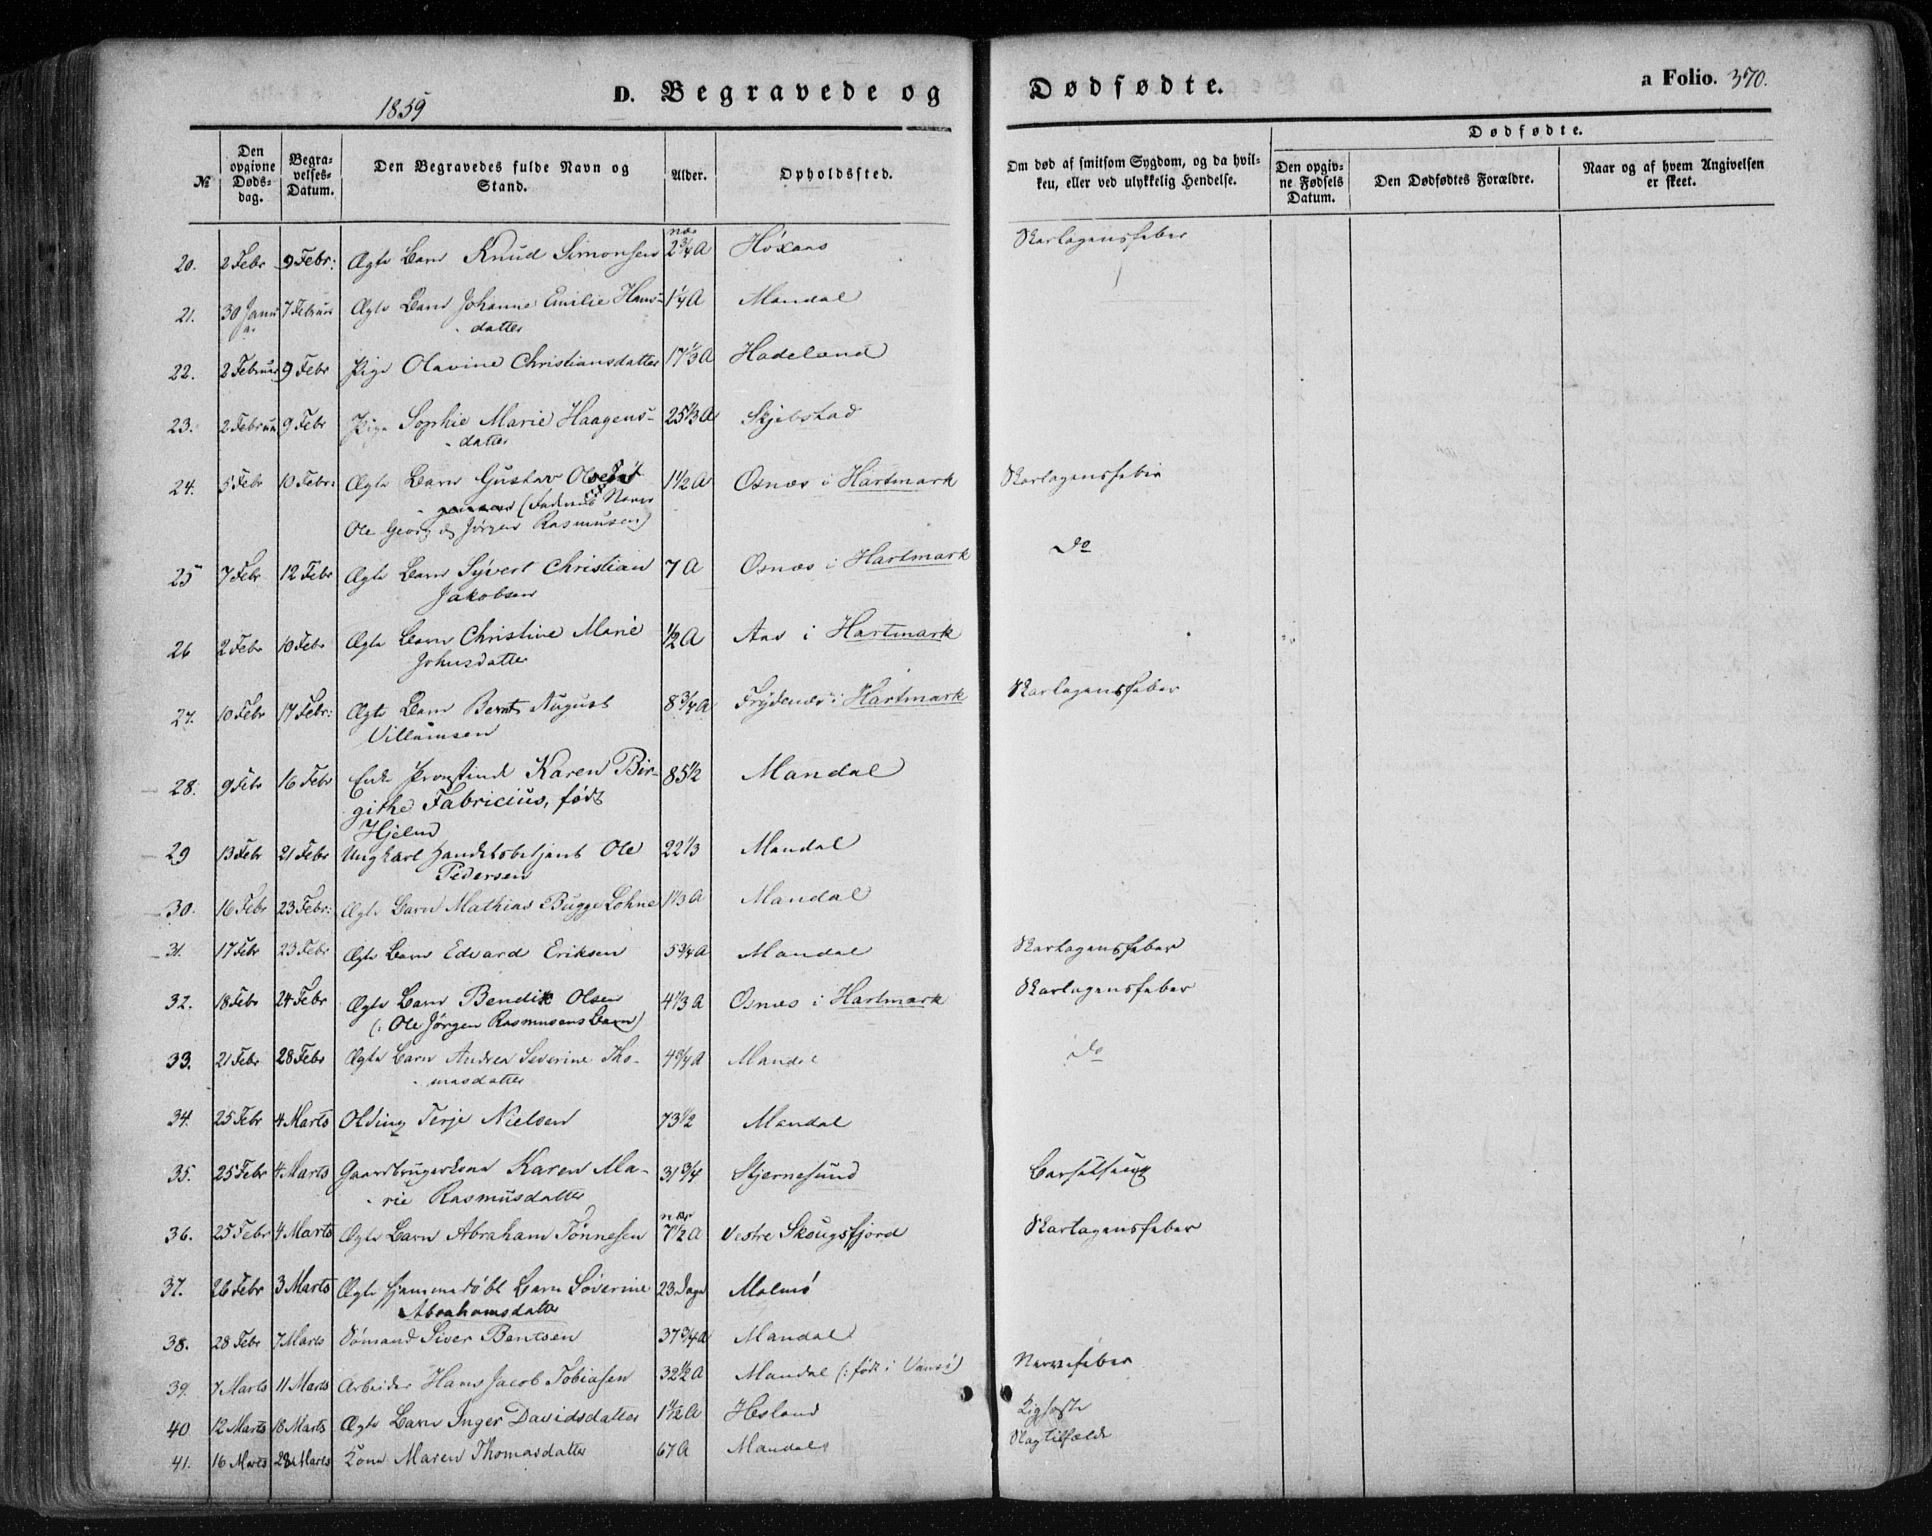 1859
D. Begravede og Dødfødte.
a Folio. 370.
№
Den opgivne Døds-dag.
Begra-velses-Datum.
Den Begravedes fulde Navn og Stand.
Alder.
Opholdssted.
Om død af smitsom Sygdom, og da hvil-ken, eller ved ulykkelig Hendelse.
Dødfødte.
Den opgiv-ne Fødsels Datum.
Den Dødfødtes Forældre.
Naar og af hvem Angivelsen er skeet.
20. 2 Febr 9 Febr: Ægte Barn Knud Simonsen 2 3/4 A Høxaas Skarlagensfeber
21. 30 Janu ar 7 Februar Ægte Barn Johanne Emilie Hans-
datter 1 1/4 A Mandal
22. 2 Februar 9 Febr Pige Olavine Christiansdatter 17 1/3 A Hadeland
23. 2 Februar 9 Febr Pige Sophie Marie Haagens-
datter 25 1/3 A Skjebstad
24. 5 Febr 10 Febr: Ægte Barn Gustav 1 1/2 A Osnæs i Hartmark Skarlagensfeber
(Faderens Navn
Ole Georg Jørgen Rasmusen)
25 7 Febr 12 Febr Ægte Barn Syvert Christian 7 A Osnæs i Hartmark Do
Jakobsen
26 2 Febr 10 Febr Ægte Barn Christine Marie 1/2 A Aas i Hartmark
Johnsdatter
27. 10 Febr 17 Febr: Ægte Barn Bernt August 8 3/4 A Frydenæs i Hartmark Skarlagensfeber
Villumsen
28. 9 Febr 16 Febr Enke Provstinde Karen Bir- 85 1/2 Mandal
githe Fabricius, født
Hjelm
29 13 Febr 21 Febr Ungkarl Handelsbetjent Ole 22 1/3 Mandal
Pedersen
30. 16 Febr 23 Febr: Ægte Barn Mathias Bugge Lohne 1 1/3 A Mandal
31. 17 Febr 23 Febr Ægte Barn Edvard Eriksen 5 3/4 A Mandal Skarlagensfeber
32. 18 Febr 24 Febr Ægte Barn Bendik Olsen 4 1/3 A Osnæs i Hartmark Skarlagensfeber
(: Ole Jørgen Rasmusens Barn)
33. 21 Febr 28 Febr Ægte Barn Andrea Severine Tho- 4 3/4 A Mandal Do
masdatter
34. 25 Febr 4 Marts Olding Terje Nielsen 73 1/2 Mandal
35. 25 Febr 4 Marts Gaardbrugerkone Karen Ma- 31 3/4 Skjernesund Barselseng
rie Rasmusdatter
36. 25 Febr 4 Marts Ægte Barn Abraham Tønnesen nær 7 1/2 A Vestre Skougsfjord Skarlagensfeber
37. 26 Febr 3 Marts Ægte hjemmedøbt Barn Severine 23 Dage Malmø
Abrahamsdatter
38. 28 Febr 7 Marts Sømand Siver Bentsen 37 3/4 A Mandal
39. 7 Marts 11 Marts Arbeider Hans Jacob Tobiasen 32 1/2 A Mandal (: født i Vansø) Nervefeber
40 12 Marts 18 Marts Ægte Barn Inger Davidsdatter 1 1/2 A Hesland Kighoste
41. 16 Marts 28 Marts Kone Maren Thomasdatter 67 A Mandal Slagtilfælde